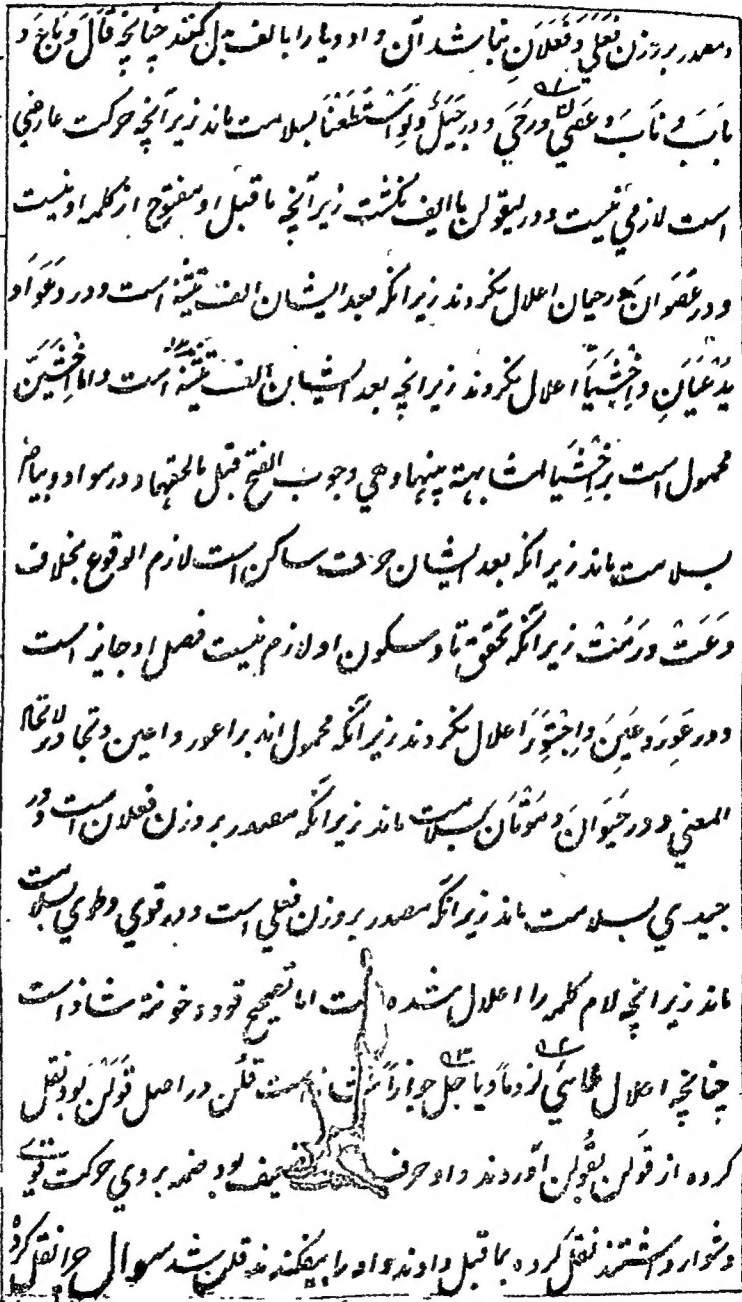 و مصدر بر وزن فَعَلي و فَعَلَانِ نباشد آن واو و یا را با الف بدل کنند چنانچه قَالَ و بَاعَ و
بَابَ و نَابَ و عَصَي و رَحَي و در جَيَلَ و لَوِ اسْتَطَعْنَا بسلامت ماند زیرا آنچه حرکت عارضي
است لازمي نیست و در لیقولن با الف نگشت زیرا آنچه ماقبل او مفتوح از کلمه او نیست
و در عَصَوَانِ و رحیان اعلال نکردند زیرا نکه بعد ایشان الف تثنیه است و در دَعَوَا و
يُدْعَيَانِ و اِخْشَيَا اعلال نکردند زیرانچه بعد ایشان الف تثنیه است و اما اِخْشَيَنَّ
محمول است بر اِخْشَيَا لمشابهة بینهما و هي وجوب الفتح قبل مالحقهما و در سواد و بیاض
بسلامت ماند زیرا نکه بعد ایشان حرف ساکن است لازم الوقوع بخلاف
دَعَتْ و رَمَتْ زیرا نکه تحقق تا و سکون او لازم نیست فصل او جایز است
و در عَوِرَ و عَيِنَ و اِجْتَوَرَ اعلال نکردند زیرا نکه محمول اند بر اعور و اعین و تجاور لاتحاد
المعني و در حَيَوَان و مَوَتَان بسلامت ماند زیرا نکه مصدر بر وزن فعلان است و در
حیدي بسلامت ماند زیرا نکه مصدر بر وزن فعلي است و در قوي و طوي بسلامت
ماند زیرانچه لام کلمه را اعلال شده است اما تصحیح قود و خونة شاذ است
چنانچه اعلال طائي لزوماً و یاجل جوازاً است قلن در اصل قَوَلْنَ بود نقل
کرده از قَوَلن بقَوُلن آوردند واو حرف ضعیف بود ضمه بروي حرکت قوي
دشوار داشتند نقل کرده بماقبل دادند واو را بیفکندند قلن شد سوال چرا نقل کرد